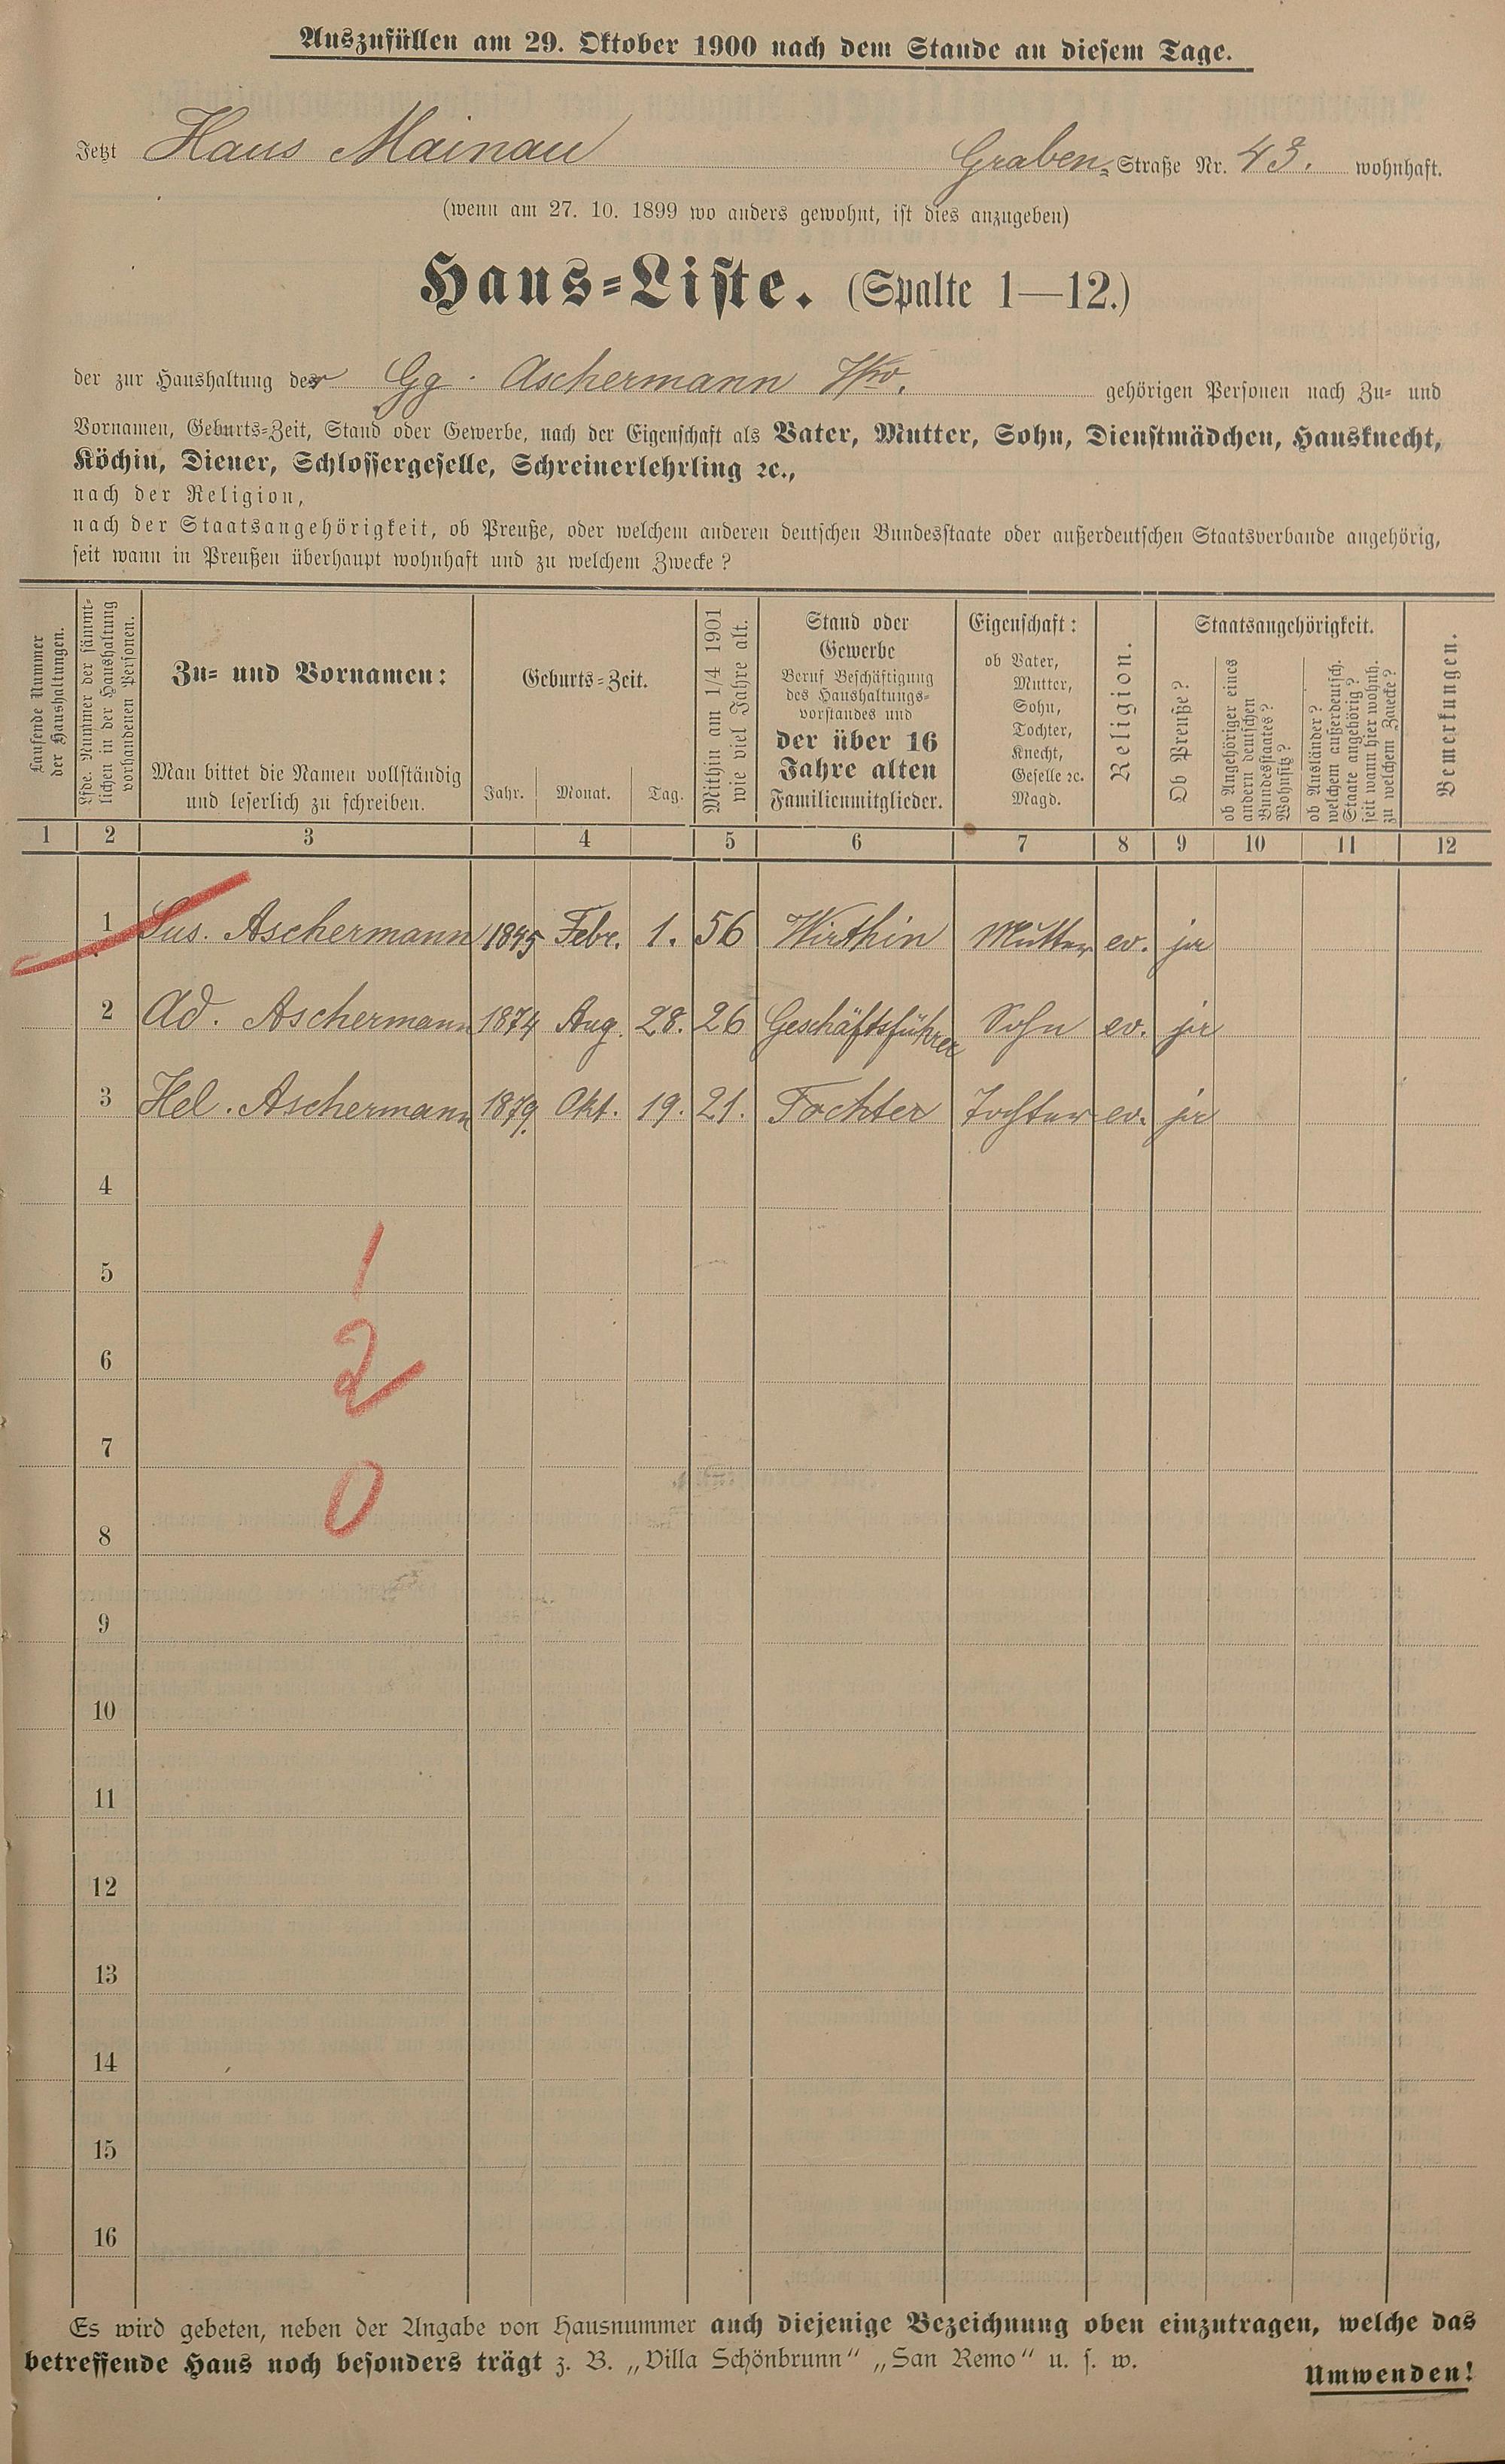 Auszufüllen am 29. Oktober 1900 nach dem Stande an diesem Tage.
Jetzt Haus Mainau Graben- Straße Nr. 43. wohnhaft.
(wenn am 27. 10. 1899 wo anders gewohnt, ist dies anzugeben)
Haus-Liste. (Spalte 1—12.)
der zur Haushaltung der Gg. Aschermann Wwe. gehörigen Personen nach Zu- und
Vornamen, Geburts-Zeit, Stand oder Gewerbe, nach der Eigenschaft als Vater, Mutter, Sohn, Dienstmädchen, Hausknecht,
Köchin, Diener, Schlossergeselle, Schreinerlehrling ꝛc.,
nach der Religion,
nach der Staatsangehörigkeit, ob Preuße, oder welchem anderen deutschen Bundesstaate oder außerdeutschen Staatsverbande angehörig,
seit wann in Preußen überhaupt wohnhaft und zu welchem Zwecke?
Laufende Nummer
der Haushaltungen.
Lfde. Nummer der sämmt-
lichen in der Haushaltung
vorhandenen Personen.
Zu- und Vornamen:
Man bittet die Namen vollständig
und leserlich zu schreiben.
Geburts-Zeit.
Jahr. Monat. Tag.
Mithin am 1/4 1901
wie viel Jahre alt.
Stand oder
Gewerbe
Beruf Beschäftigung
des Haushaltungs-
vorstandes und
der über 16
Jahre alten
Familienmitglieder.
Eigenschaft:
ob Vater,
Mutter,
Sohn,
Tochter,
Knecht,
Geselle ꝛc.
Magd.
Religion.
Staatsangehörigkeit.
Ob Preuße?
ob Angehöriger eines
andern deutschen
Bundesstaates?
Wohnsitz?
ob Ausländer?
welchem außerdeutsch.
Staate angehörig?
seit wann hier wohnh.
zu welchem Zwecke?
Bemerkungen.
1 2 3 4 5 6 7 8 9 10 11 12
1 Sus. Aschermann 1845 Febr. 1. 56 Wirthin Mutter ev. ja
2 Ad. Aschermann 1874 Aug. 28. 26 Geschäftsführer Sohn ev. ja
3 Hel. Aschermann 1879 Okt. 19. 21. Tochter Tochter ev. ja
4
1
5
2
6
7
0
8
9
10
11
12
13
14
15
16
Es wird gebeten, neben der Angabe von Hausnummer auch diejenige Bezeichnung oben einzutragen, welche das
betreffende Haus noch besonders trägt z. B. „Villa Schönbrunn“ „San Remo“ u. s. w.
Umwenden!